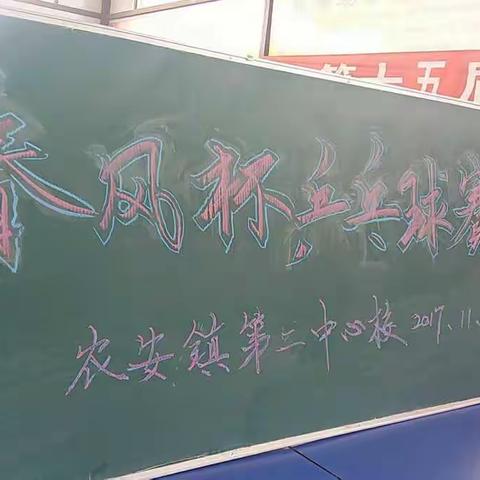 第十五届
春风杯乒乓球赛
农安镇第二中心校 2017.11.